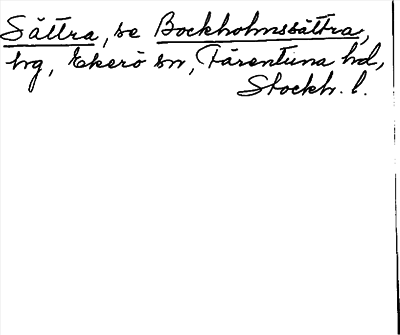 Sättra, se Bockholmssättra,
hg, Ekerö sn, Färentuna hd,
Stockh. l.